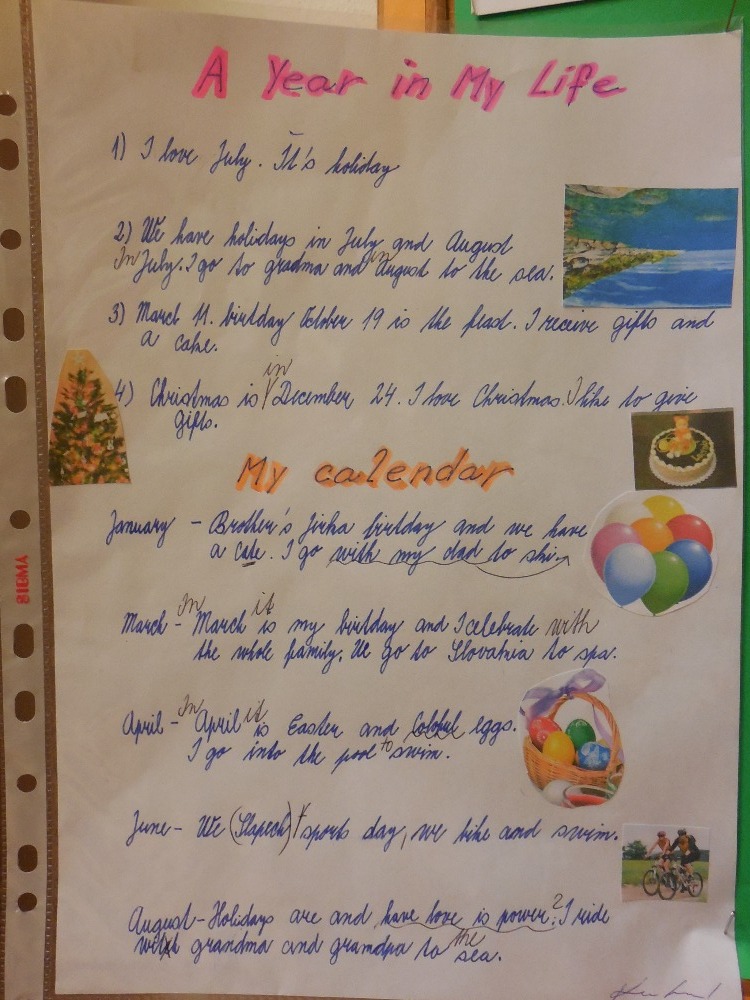 A Year in My Life
1) I love July. It's holiday
2) We have holidays in July and August
In July. I go to gradma and in August to the sea.
3) March 11. birtday October 19 is the feast. I receive gifts and
a cake.
in
4) Christmas is December 24. I love Christmas. I like to give
gifts.
My calendar
January - Brother's Jirka birtday and we have
a cake. I go with my dad to ski.
In it
March - March is my birtday and I celebrate with
the whole family. We go to Slovakia to spa.
In it
April - April is Easter and eggs.
I go into the pool to swim.
June - We (Slapech) sports day, we bike and swim.
August - Holidays are and have love is power.? I ride
with grandma and grampa to the sea.
SIGMA